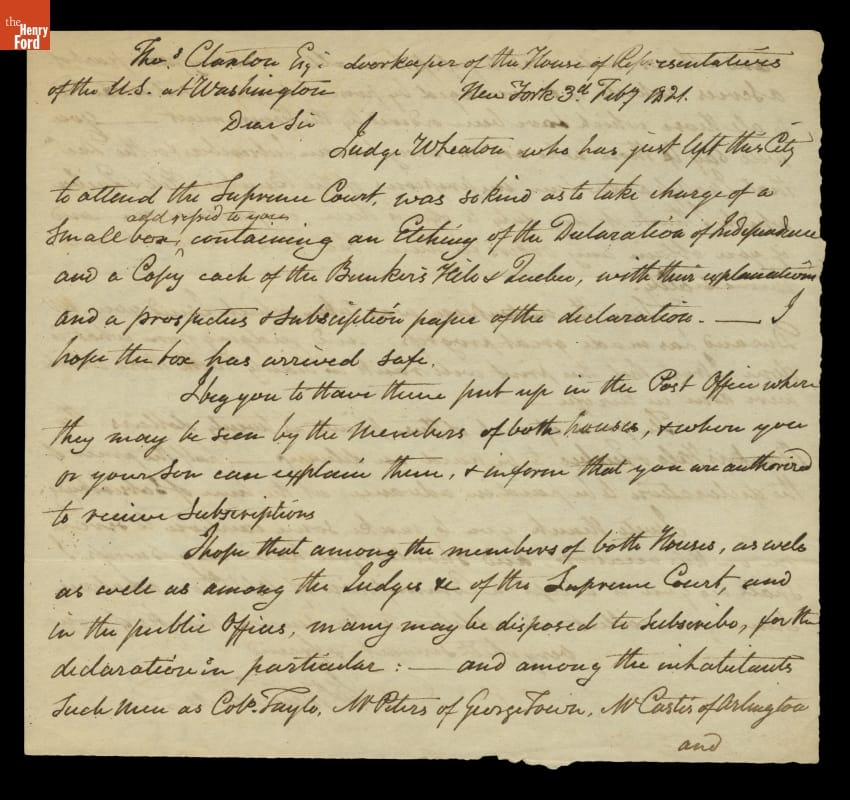 the
Henry
Ford
Thoˢ Claxton Esqʳ doorkeeper of the House of Representatives
of the U.S. at Washington New York 3ᵈ Feby 1821.
Dear Sir
Judge Wheaton who has just left this City
to attend the Supreme Court, was so kind as to take charge of a
add ress'd to you
small box, containing an Etching of the Declaration of Independence
and a Copy each of the Bunker's Hill & Quebec, with their explanations
and a prospectus & subscription paper of the declaration. — I
hope the box has arrived safe.
I beg you to have them put up in the Post Office where
they may be seen by the members of both houses, & when you
or your Son can explain them, & inform that you are authorized
to receive Subscriptions
I hope that among the members of both Houses, as well
as well as among the Judges &c of the Supreme Court, and
in the public Offices, many may be disposed to Subscribe, for the
declaration in particular: — and among the inhabitants
Such men as Colᵒ. Taylo, Mʳ Peters of George Town, Mʳ Custis of Arlington
and